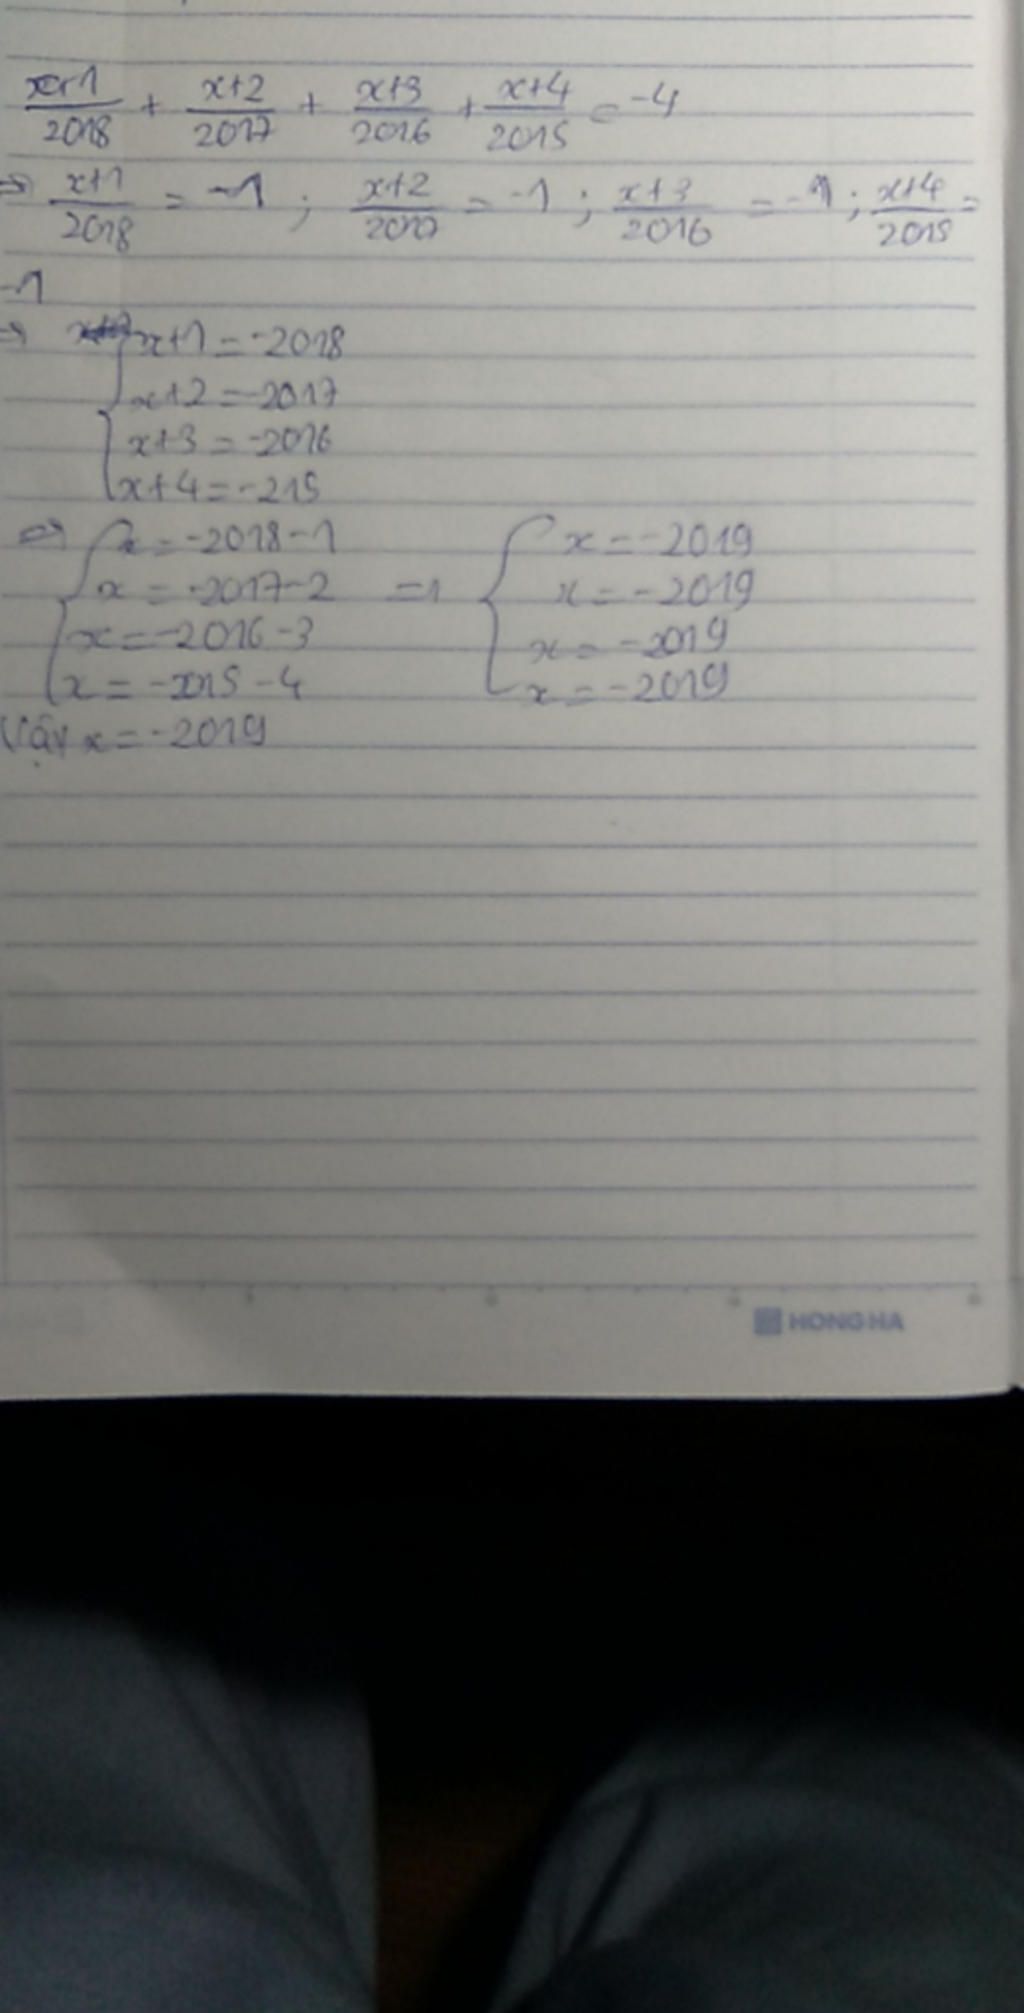 x+1/2018 + x+2/2017 + x+3/2016 + x+4/2015 = -4
=> x+1/2018 = -1 ; x+2/2017 = -1 ; x+3/2016 = -1 ; x+4/2015 =
-1
=> x+1 = -2018
x+2 = -2017
x+3 = -2016
x+4 = -215
=> x = -2018-1
x = -2017-2
x = -2016-3
x = -2015-4
=> x = -2019
x = -2019
x = -2019
x = -2019
Vậy x = -2019
HONG HA